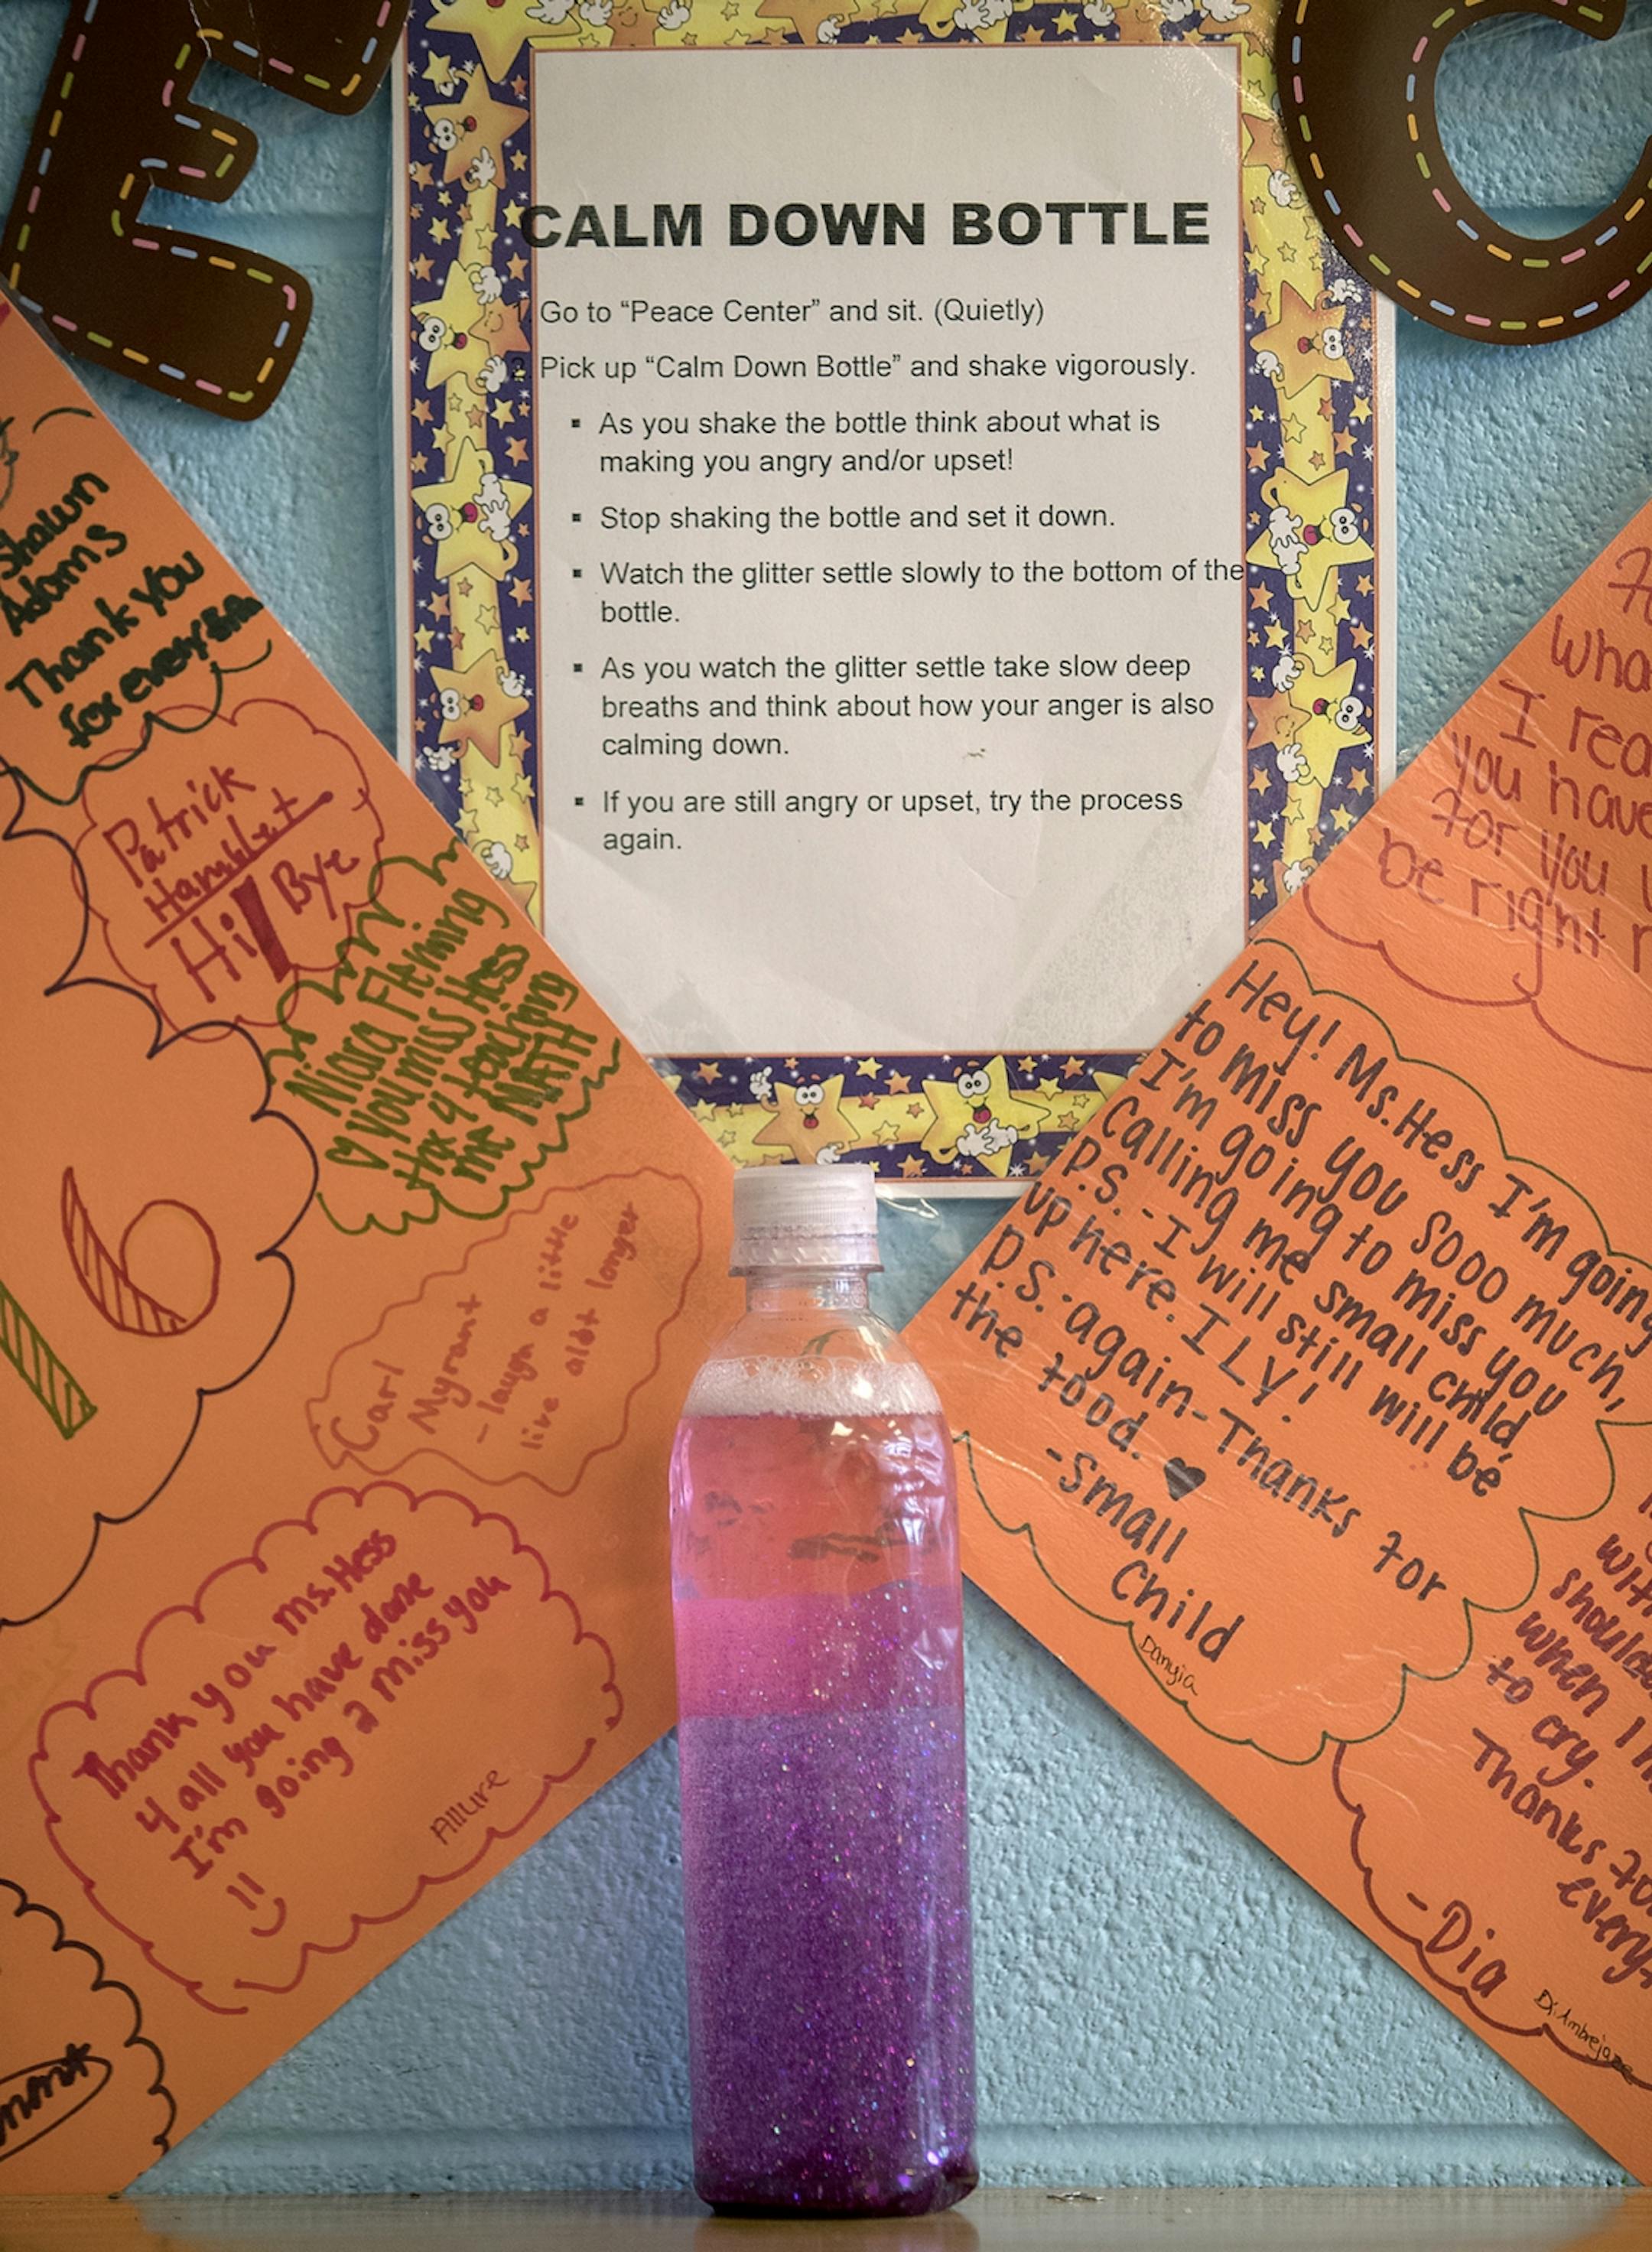 E
C
CALM DOWN BOTTLE
1. Go to “Peace Center” and sit. (Quietly)
2. Pick up “Calm Down Bottle” and shake vigorously.
▪ As you shake the bottle think about what is
making you angry and/or upset!
▪ Stop shaking the bottle and set it down.
▪ Watch the glitter settle slowly to the bottom of the
bottle.
▪ As you watch the glitter settle take slow deep
breaths and think about how your anger is also
calming down.
▪ If you are still angry or upset, try the process
again.
Shawn
Adams
Thank you
for
Patrick
Hi Bye
Niara Fleming
♡ You miss Hess
4 teaching
me MATH
16
Carl
Myrant
- laugh a little
live alot longer
Thank you ms.Hess
4 all you have done
I'm going 2 miss you
Allure
I
you have
for you
be right
Hey! Ms.Hess I'm going
to miss you sooo much,
I'm going to miss you
Calling me small child,
P.S.-I will still will be
up here. I LY!
P.S.-again-Thanks for
the food. ♥
-Small
Child
Danyia
when I'm
to cry.
Thanks for
every
-Dia